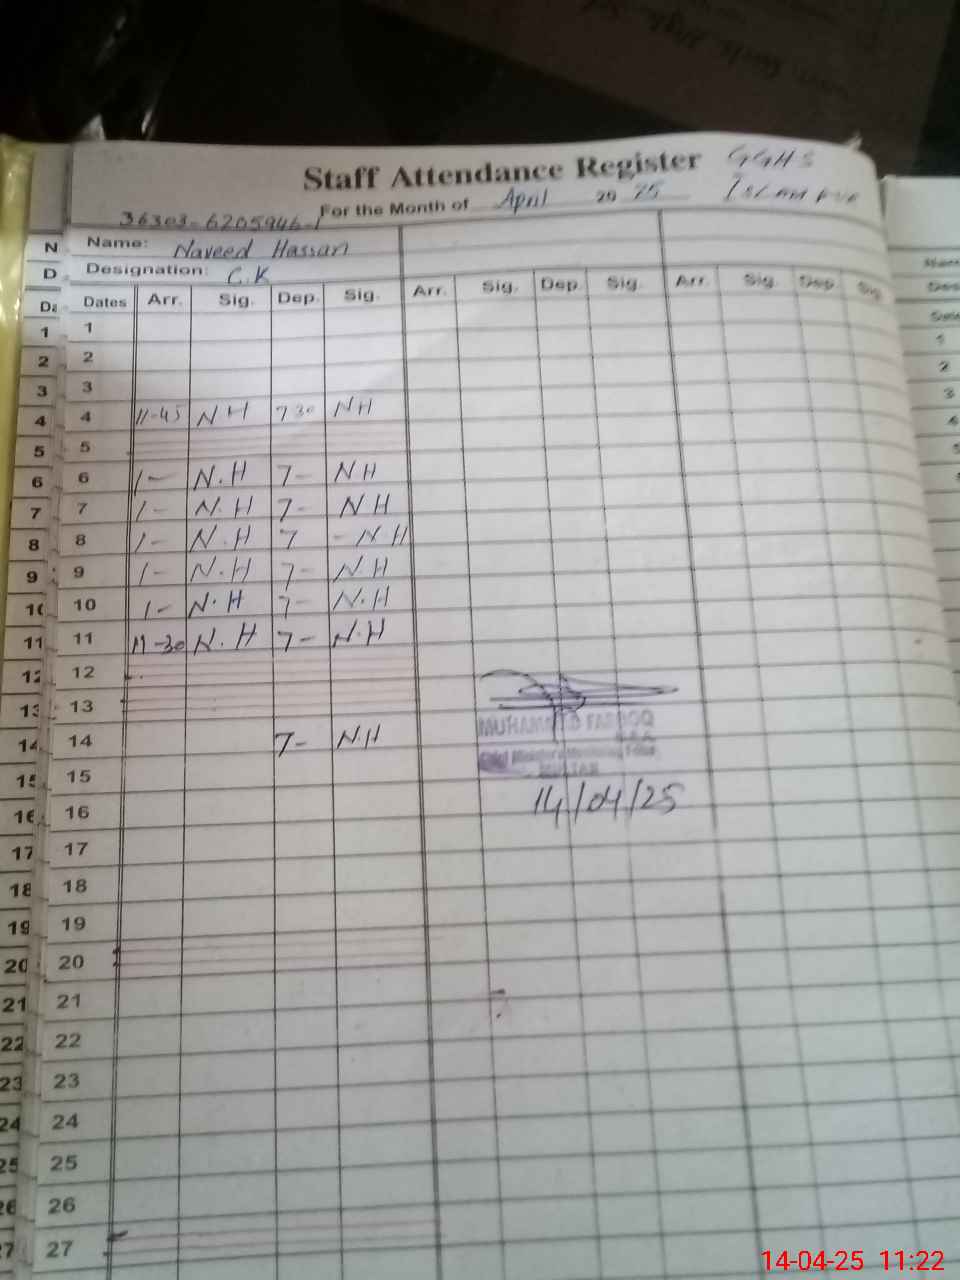 Staff Attendance Register GGHS
For the Month of April 2025
36303-6205946-1
Name: Naveed Hassan
Designation: C.K
Dates Arr. Sig. Dep. Sig. Arr. Sig. Dep. Sig. Arr. Sig. Dep. Sig.
1
2
3
4 11-45 NH 7 30 NH
5
6 1- N.H 7- NH
7 1- N.H 7- NH
8 1- N.H 7 - NH
9 1- N.H 7- NH
10 1- N.H 7- N.H
11 11-30 N.H 7- N.H
12
13
14 7- N.H
15
16
17
18
19
20
21
22
23
24
25
26
27
MULTAN
14/04/25
14-04-25 11:22